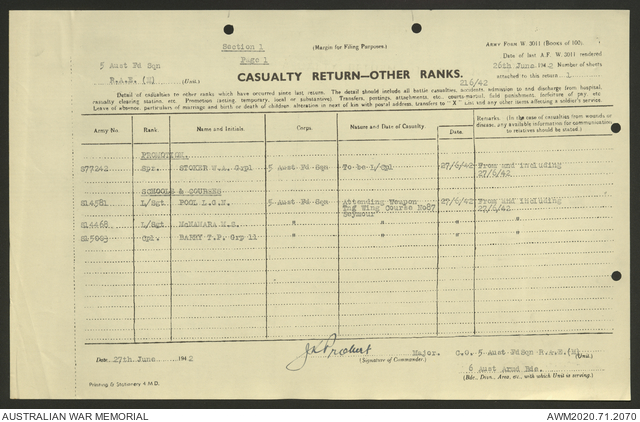 Section 1
Page 1
(Margin for Filing Purposes.)
ARMY FORM W. 3011 (Books of 100).
Date of last A.F. W. 3011 rendered
5 Aust Fd Sqn
26th June 1942 Number of sheets
R.A.E. (Unit.)
attached to this return 1
CASUALTY RETURN—OTHER RANKS.
216/42
Detail of casualties to other ranks which have occurred since last return. The detail should include all battle casualties, accidents, admission to and discharge from hospital,
casualty clearing station, etc. Promotion (acting, temporary, local or substantive). Transfers, postings, attachments, etc., courts-martial, field punishment, forfeiture of pay, etc.
Leave of absence, particulars of marriage and birth or death of children alteration in next of kin with postal address, transfers to "X" List and any other items affecting a soldier's service.
Army No. Rank. Name and Initials. Corps. Nature and Date of Casualty Date. Remarks (In the case of casualties from wounds or disease, any available information for communication to relatives should be stated.)
PROMOTION.
S77242 Spr. STOKER W.A. Grp1 5 Aust Fd Sqn To be L/Cpl 27/6/42 From and including
27/6/42
SCHOOLS & COURSES
S14581 L/Sgt POOL L.G.N. 5 Aust Fd Sqn Attending Weapon 27/6/42 From and including
Tng Wing Course No87 27/6/42
Seymour
S14468 L/Sgt McNAMARA " " " "
Cpl. T.P. Grp 11 " " " "
Date 27th June 1942
Major. C.O. 5 Aust FdSqn R.A.E. (Unit)
(Signature of Commander.)
6 Aust Armd Bde.
(Bde., Divn., Area, etc., with which Unit is serving).
Printing & Stationery 4 M.D.
AUSTRALIAN WAR MEMORIAL
AWM2020.71.2070